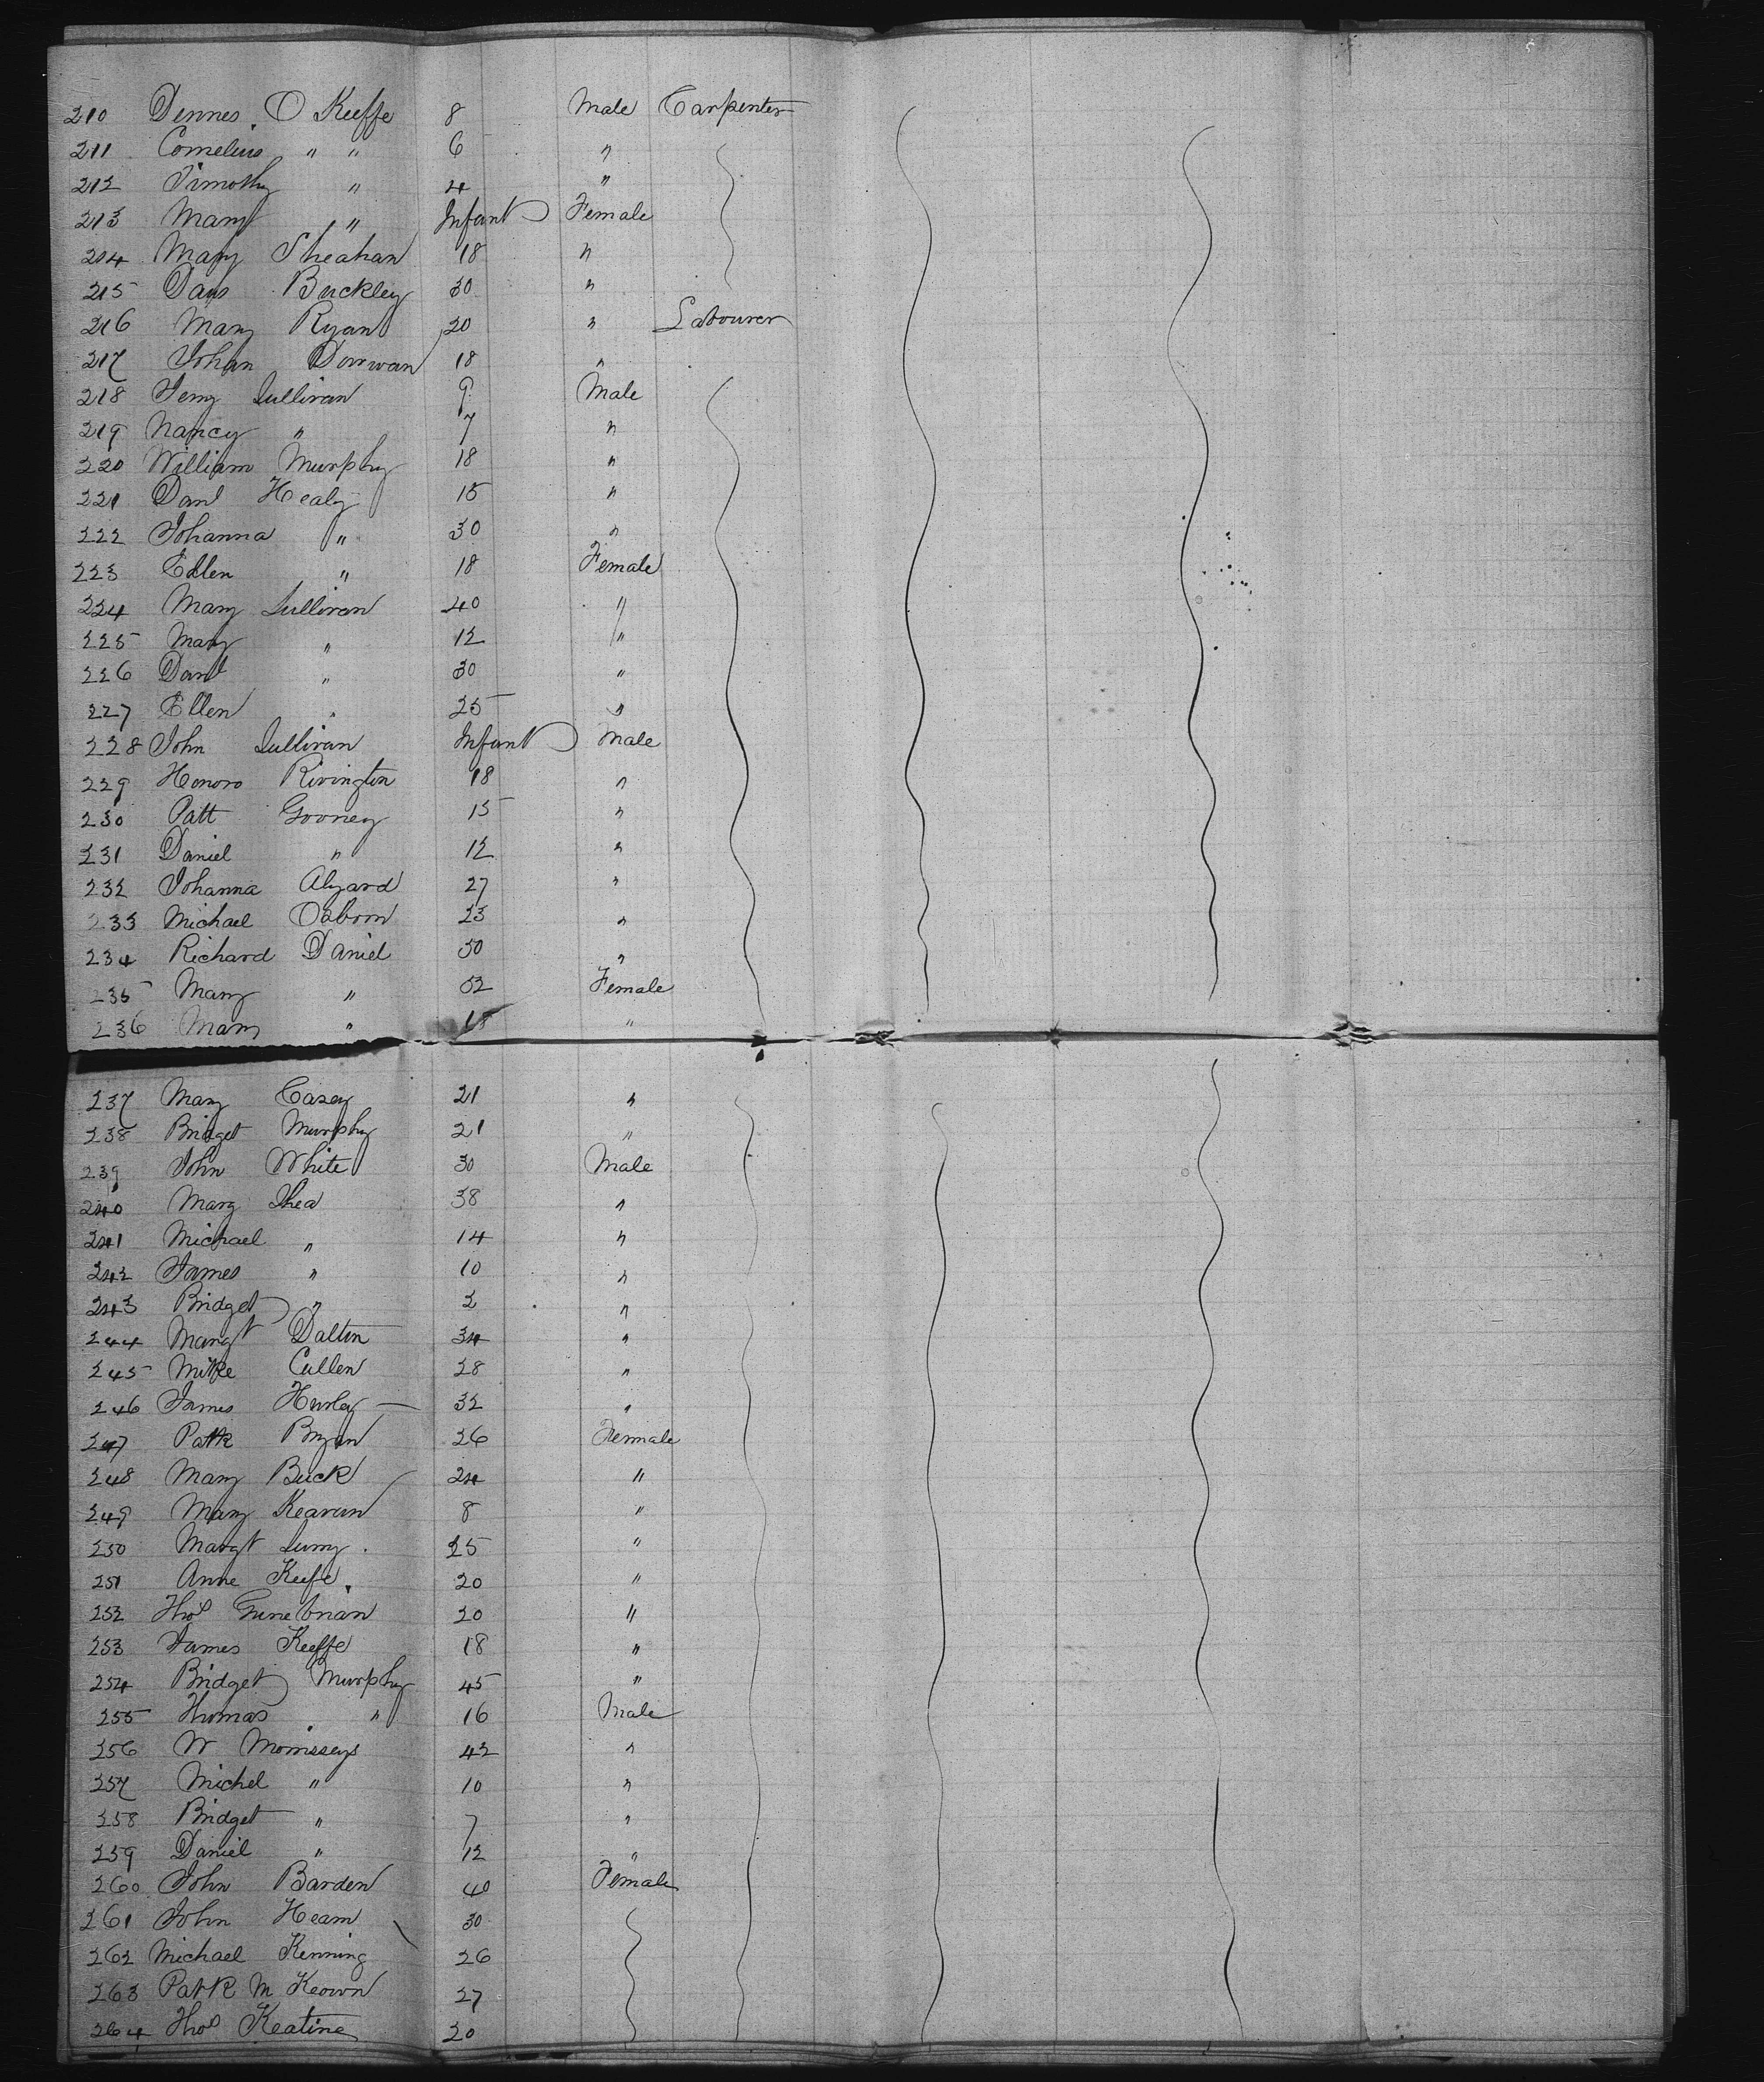 210 Dennes O Keeffe 8 Male Carpenter
211 Cornelius " " 6 "
212 Timothy " 4 "
213 Mary " Infant Female
214 Mary Sheahan 18 "
215 Buckley 30 "
216 Mary Ryan 20 " Labourer
217 Johan 18 "
218 Jerry Sullivan 9 Male
219 Nancy " 7 "
220 William Murphy 18 "
221 Danl Healy 15 "
222 Johanna " 30 "
223 Ellen " 18 Female
224 Mary Sullivan 40 "
225 Mary " 12 "
226 Danl " 30 "
227 Ellen " 25 "
228 John Sullivan Infant Male
229 Honoro Rivington 18 "
230 Patt Gooney 15 "
231 Daniel " 12 "
232 Johanna Alyard 27 "
233 Michael Osborn 23 "
234 Richard Daniel 50 "
235 Mary " 52 Female
236 Mary " 18 "
237 Mary Casey 21 "
238 Bridget Murphy 21 "
239 John White 30 Male
240 Mary Shea 38 "
241 Michael " 14 "
242 James " 10 "
243 Bridget " 2 "
244 Margt Dalton 34 "
245 Mike Cullen 28 "
246 James Hurley 32 "
247 Patk Bryan 26 Female
248 Mary Buck 24 "
249 Mary 8 "
250 Margt 25 "
251 Anne Keefe 20 "
252 Thos 20 "
253 James Keeffe 18 "
254 Bridget Murphy 45 "
255 Thomas " 16 Male
256 W Morrisseys 42 "
257 Michel " 10 "
258 Bridget " 7 "
259 Daniel " 12 "
260 John Barden 40 Female
261 John Hearn 30
262 Michael Kenning 26
263 Patk M Keown 27
264 Thos Keatine 20